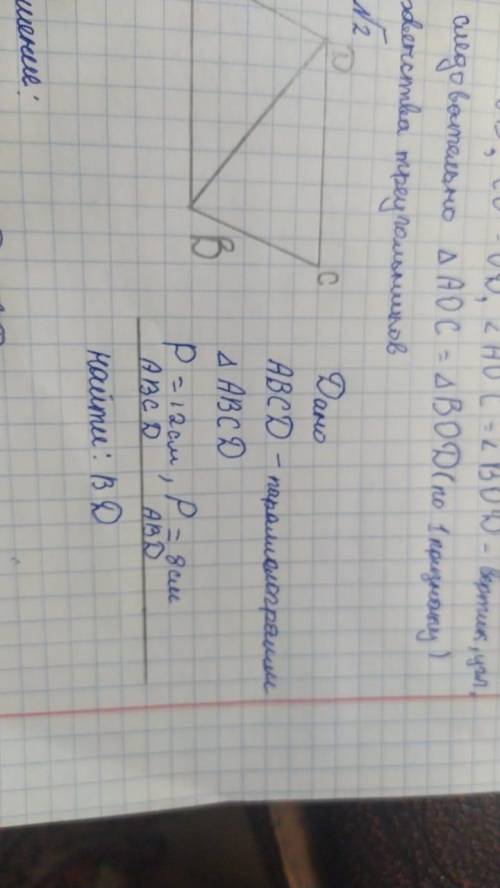 OD, ∠AOC = ∠BOD - вертик, угл,
следовательно △AOC = △BOD (по 1 признаку)
треугольников
№2
D
C
B
Дано
ABCD - параллелограмм
△ABCD
P ABCD = 12см, P ABD = 8см
Найти: BD